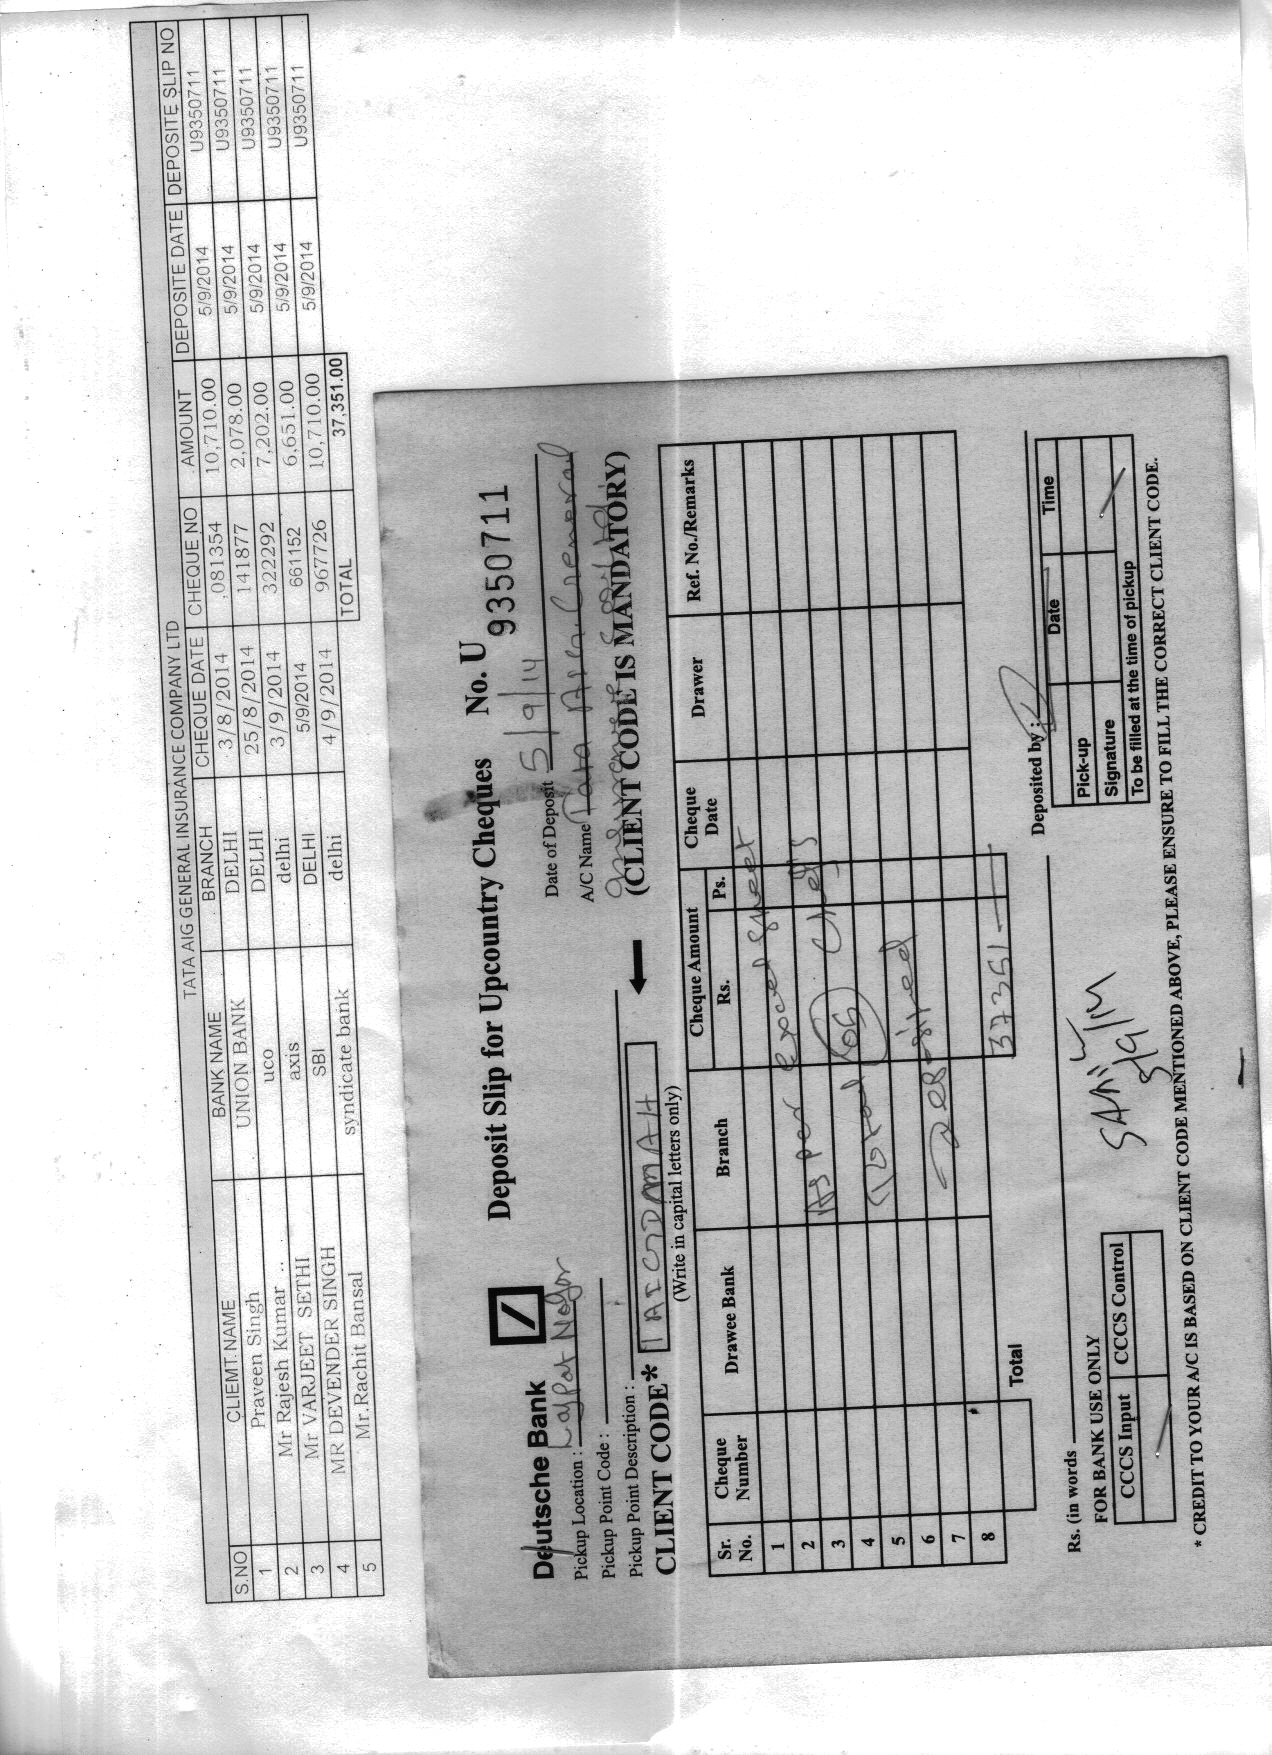 TATA AIG GENERAL INSURANCE COMPANY LTD
S.NO CLIEMT.NAME BANK NAME BRANCH CHEQUE DATE CHEQUE NO AMOUNT DEPOSITE DATE DEPOSITE SLIP NO
1 Praveen Singh UNION BANK DELHI 3/8/2014 081354 10,710.00 5/9/2014 U9350711
2 Mr Rajesh Kumar .. uco DELHI 25/8/2014 141877 2,078.00 5/9/2014 U9350711
3 Mr VARJEET SETHI axis delhi 3/9/2014 322292 7,202.00 5/9/2014 U9350711
4 MR DEVENDER SINGH SBI DELHI 5/9/2014 661152 6,651.00 5/9/2014 U9350711
5 Mr.Rachit Bansal syndicate bank delhi 4/9/2014 967726 10,710.00 5/9/2014 U9350711
TOTAL 37,351.00
Deutsche Bank Deposit Slip for Upcountry Cheques No. U 9350711
Pickup Location : Lajpat Nagar Date of Deposit 5/9/14
Pickup Point Code : A/C Name Tata AIG General
Pickup Point Description : Insurance
CLIENT CODE* (CLIENT CODE IS MANDATORY)
(Write in capital letters only)
Sr. No. Cheque Number Drawee Bank Branch Cheque Amount Rs. Ps. Cheque Date Drawer Ref. No./Remarks
1
2 As per excel sheet
3
4 Total 05
5
6
7
8
Total 37351
Rs. (in words Deposited by :
FOR BANK USE ONLY
CCCS Input CCCS Control
5/9/14
Date Time
Pick-up
Signature
To be filled at the time of pickup
* CREDIT TO YOUR A/C IS BASED ON CLIENT CODE MENTIONED ABOVE, PLEASE ENSURE TO FILL THE CORRECT CLIENT CODE.